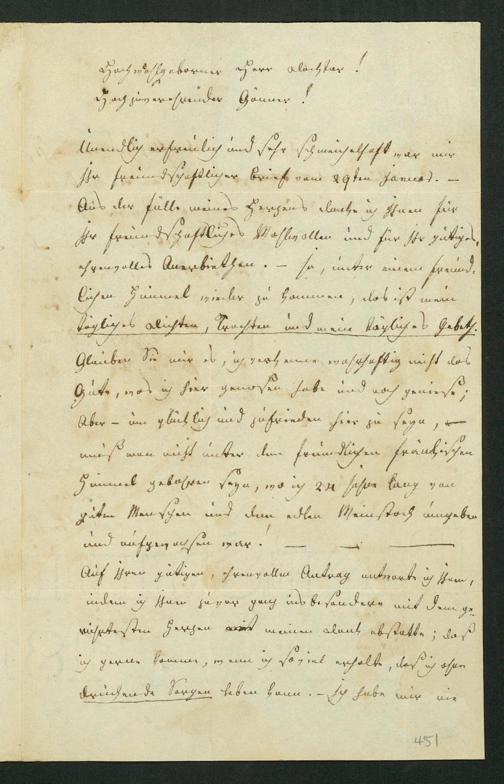 Hochwohlgeborner Herr Doctor!
Hochzuverehrender Gönner!
Unendlich erfreulich und sehr schmeichelhaft war mir
Ihr freundschaftlicher Brief vom 29ten Januar. —
Aus der Fülle meines Herzens danke ich Ihnen für
Ihr freundschaftliches Wohlwollen und für Ihr gütiges,
ehrenvolles Anerbiethen. — Ja, unter einem freund-
lichen Himmel wieder zu kommen, das ist mein
tägliches Dichten, Trachten und mein tägliches Gebeth.
Glauben Sie mir es, ich verkenne wahrhaftig nicht das
Gute, was ich hier genossen habe und noch geniese;
Aber — um glücklich und zufrieden hier zu seyn,
muß man nicht unter dem freundlichen fränkischen
Himmel gebohren seyn, wo ich 24 Jahre lang von
guten Menschen und dem edlen Weinstock umgeben
und aufgewachsen war! — — —
Auf Ihren gütigen, ehrenvollen Antrag antworte ich Ihnen,
indem ich Ihnen zuvor ganz insbesondere mit dem ge-
rührtesten Herzen meinen Dank abstatte; daß
ich gerne komme, wenn ich soviel erhalte, daß ich ohne
drückende Sorgen leben kann. — Ich habe mir nie
451